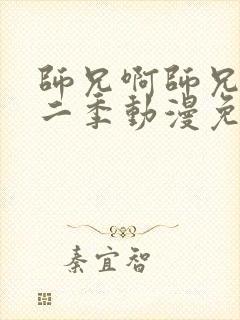 師兄啊師兄
二季動漫免
秦宜智